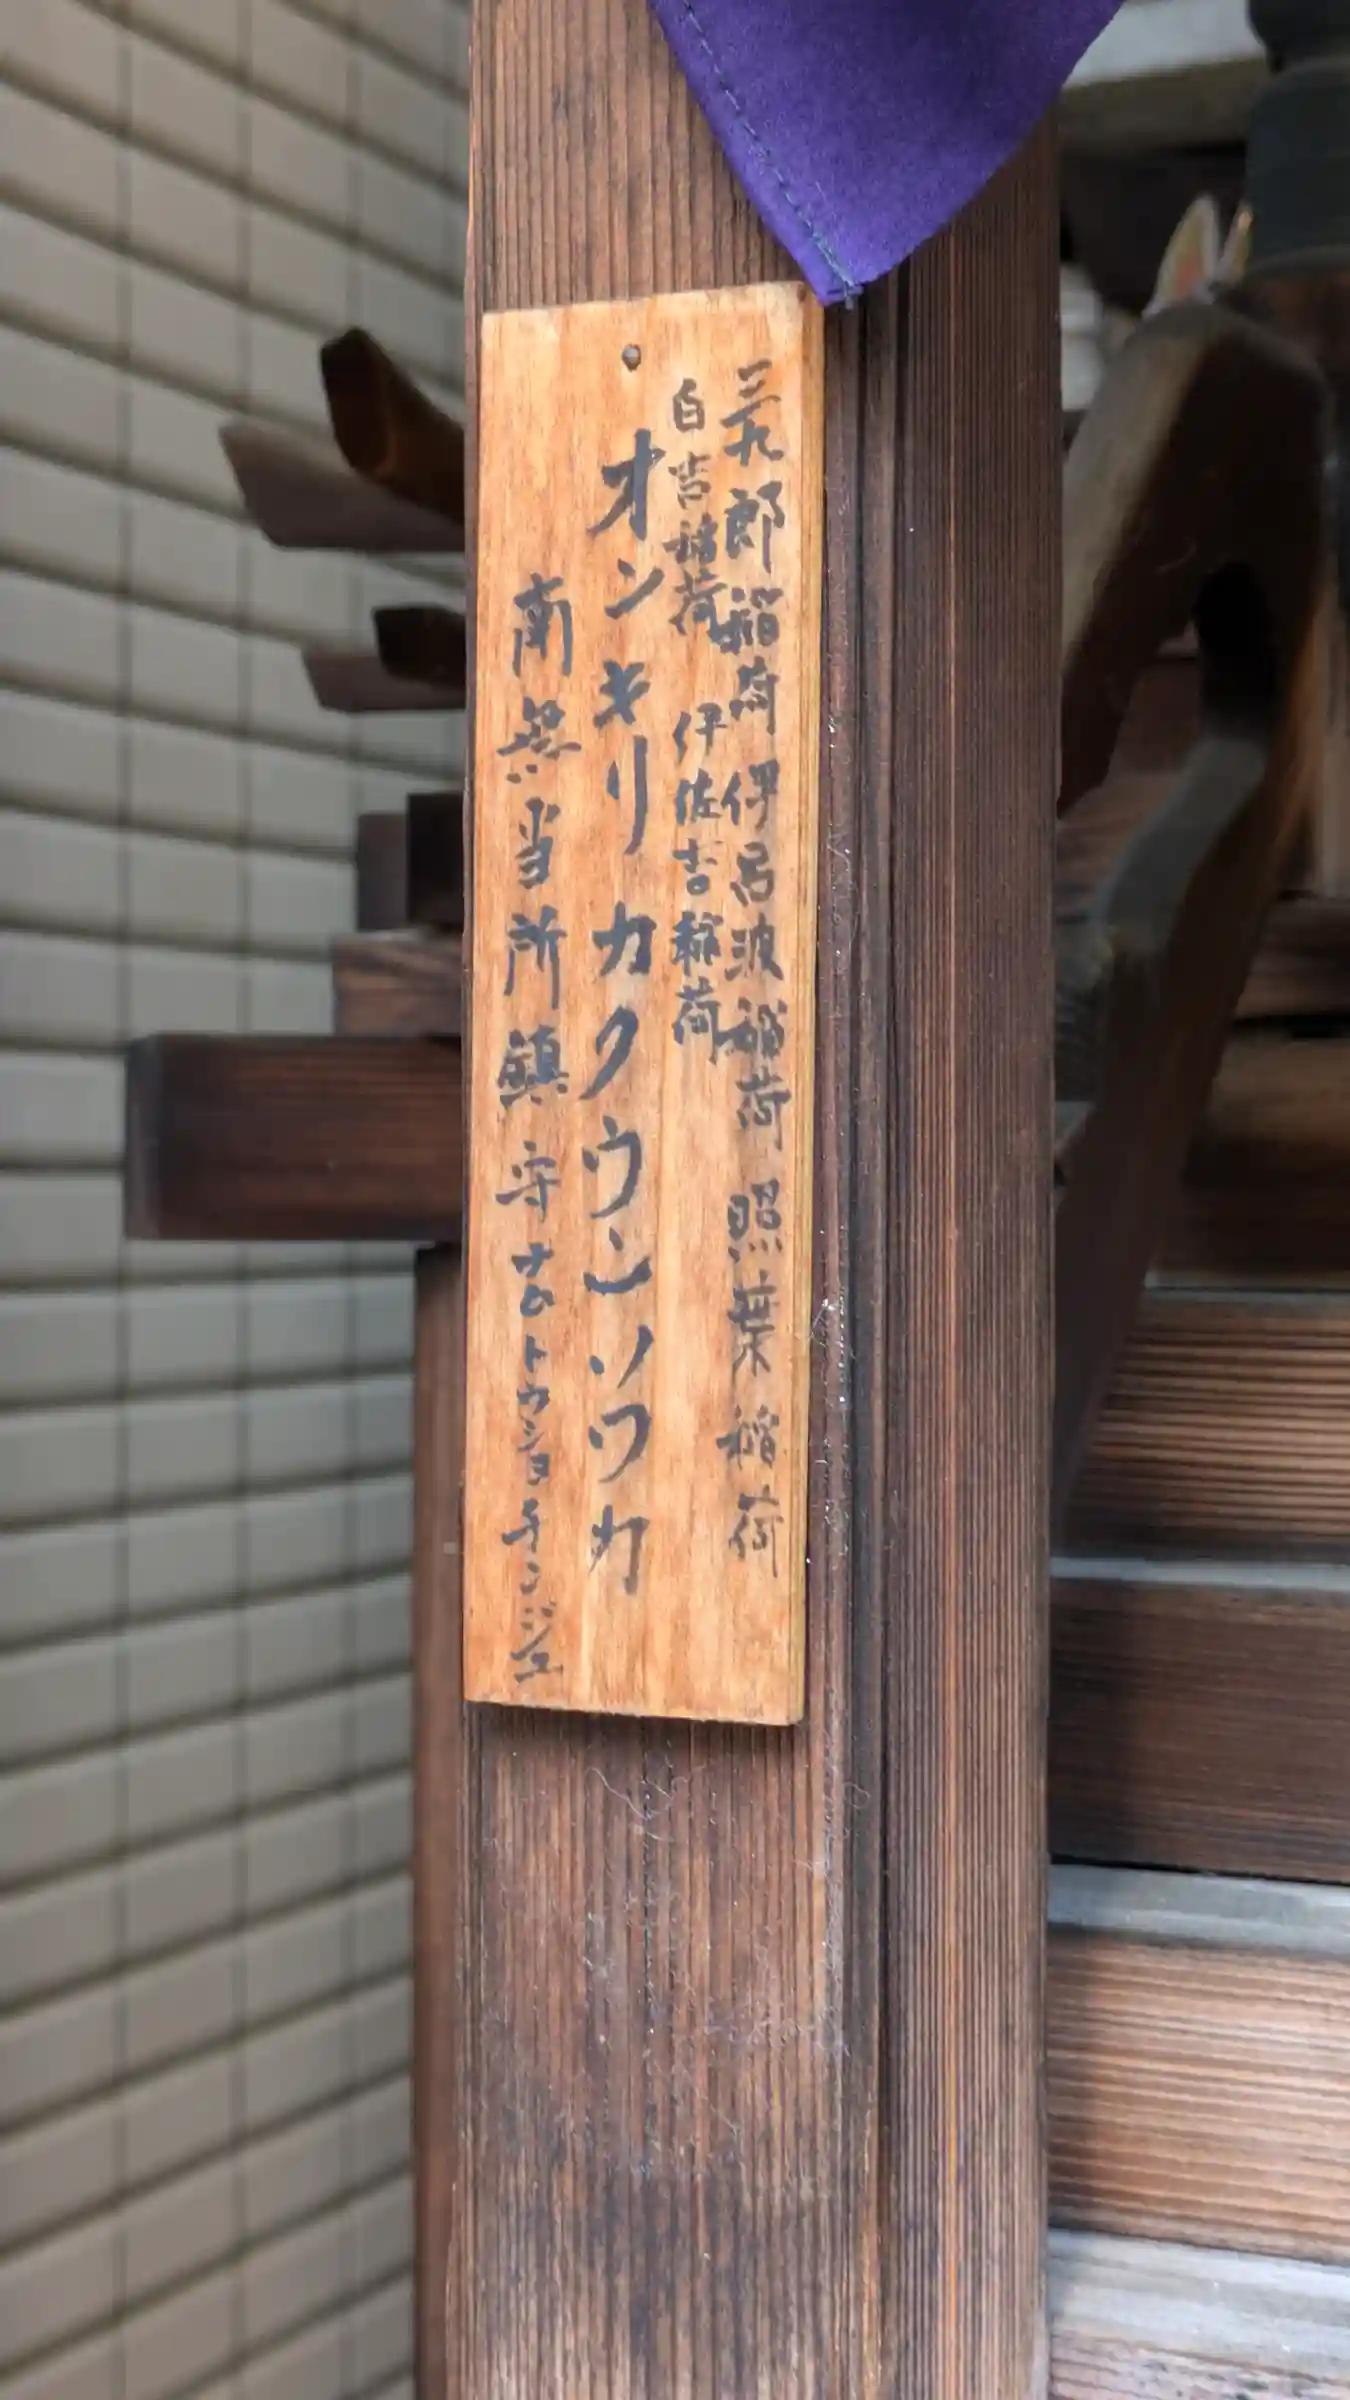 三九郎稲荷 伊呂波稲荷 照葉稲荷
白吉稲荷 伊佐吉稲荷
オンキリカクウンソワカ
南無当所鎮守ナムトウショチンジュ